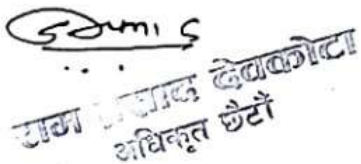 राम प्रसाद देवकोटा
अधिकृत छैटौं